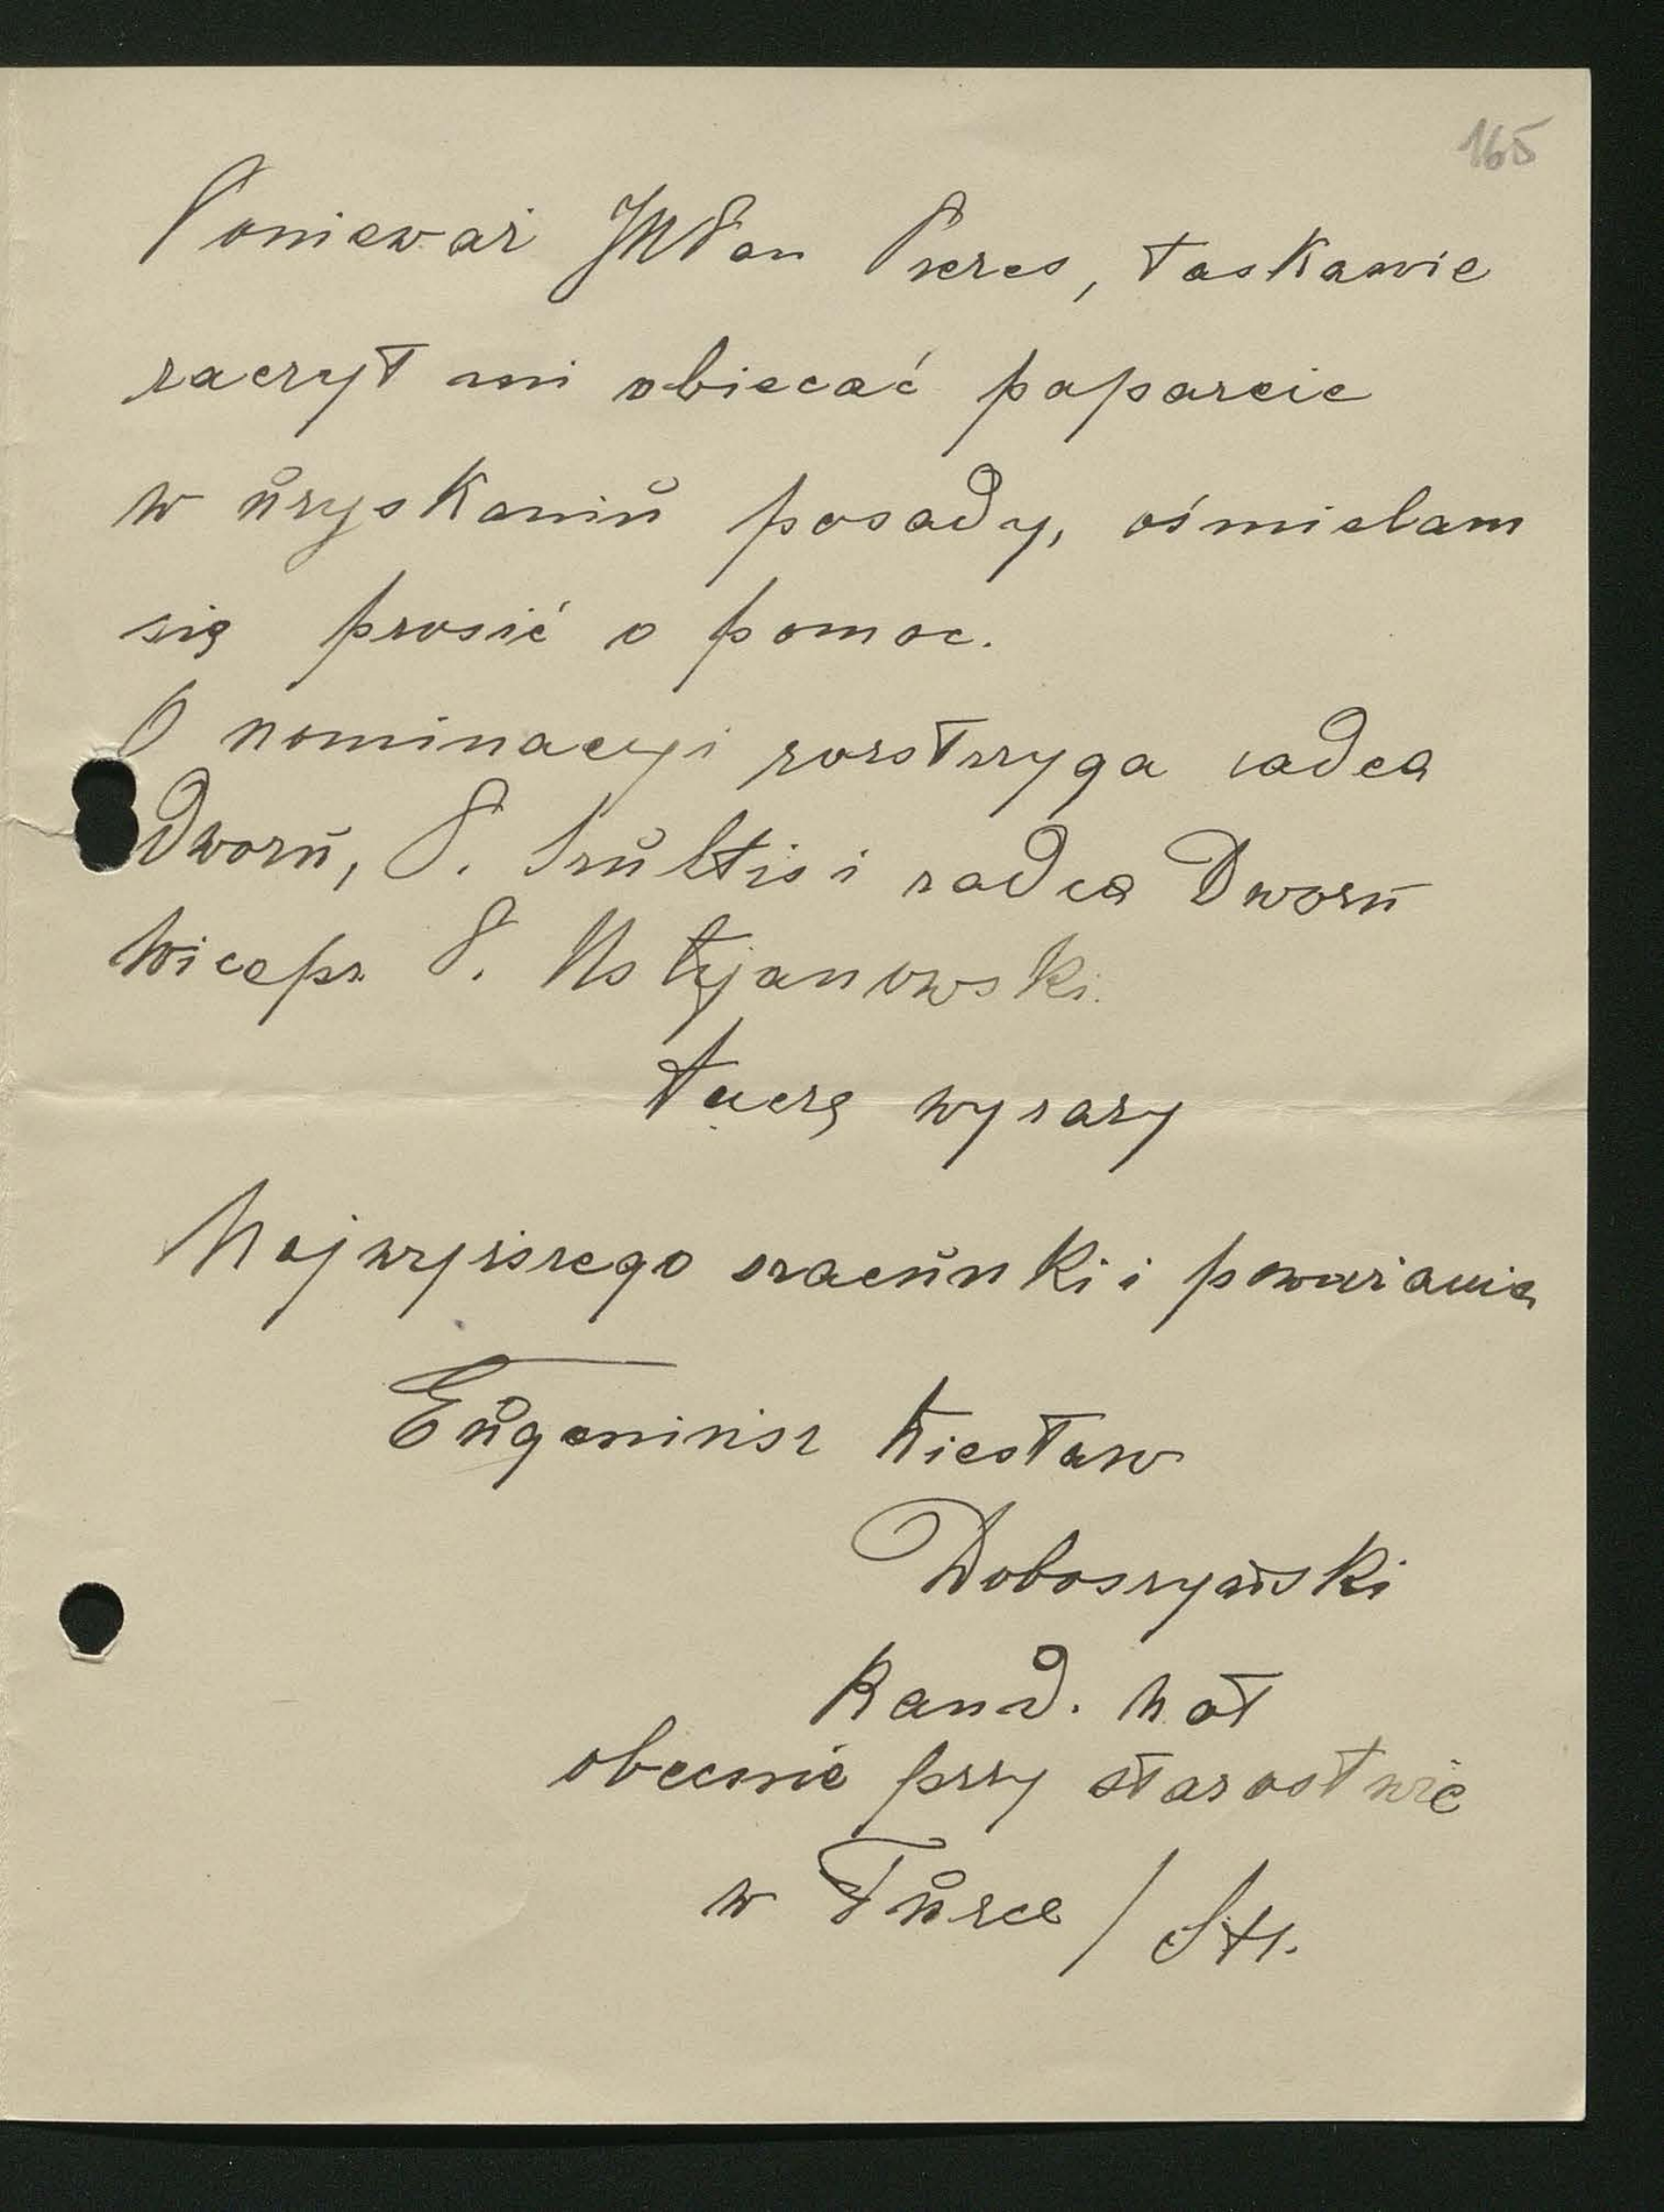 165
Ponieważ JWPan Prezes, łaskawie
raczył mi obiecać poparcie
w uzyskaniu posady, ośmielam
się prosić o pomoc.
O nominacyi rozstrzyga radca
Dworu, P. Szultis i radca Dworu
Wicepr. P. Ustyanowski.
Łączę wyrazy
Najwyższego szacunku i poważania
Eugeniusz Wiesław
Doboszyński
Kand. not
obecnie przy starostwie
w Turce / St.